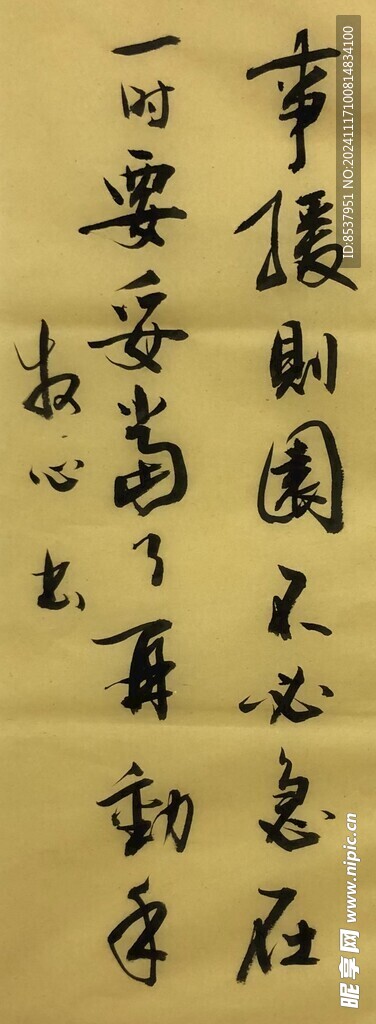 事緩則園不必急在
一时要妥當了再動手
牧心书
ID:8537951 NO:20241117100814834100
昵享网 www.nipic.cn